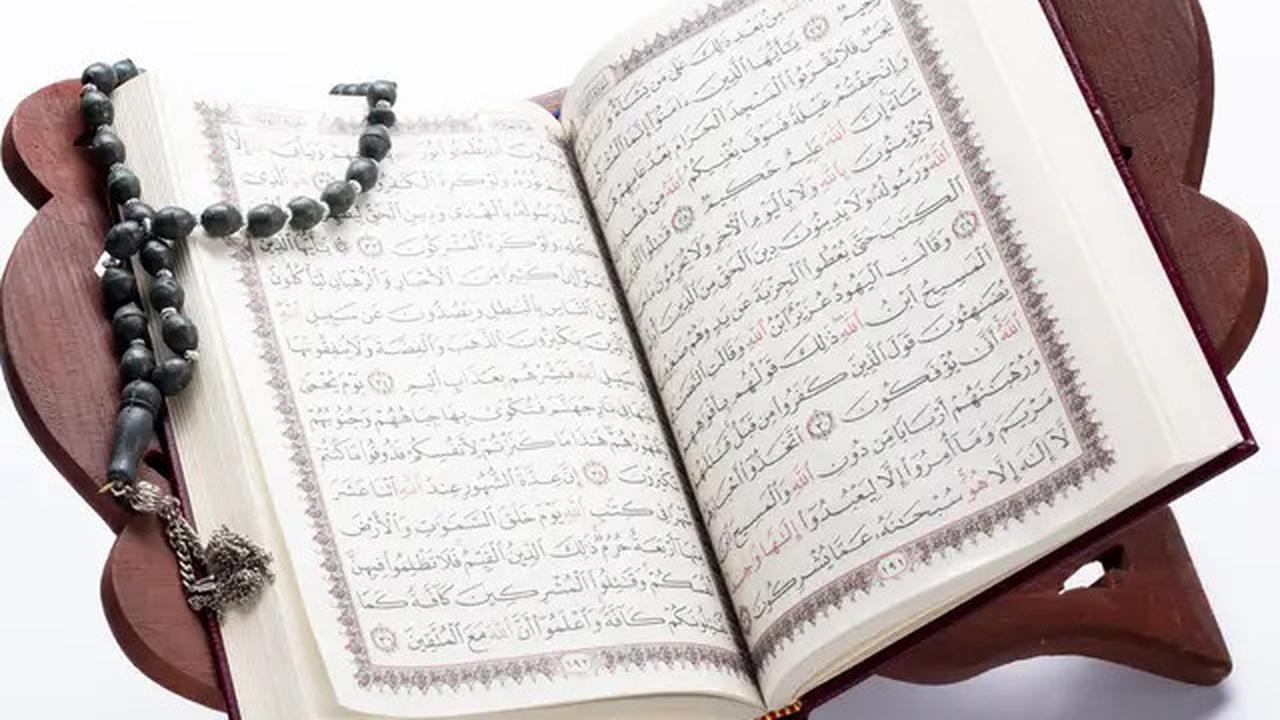 مِنۢ بَعْدِ ذَٰلِكَ عَلَىٰ مَن يَشَآءُ
رَّحِيمٌ ٢٧ يَٰٓأَيُّهَا ٱلَّذِينَ ءَامَنُوٓا۟ إِنَّمَا
نَجَسٌ فَلَا يَقْرَبُوا۟ ٱلْمَسْجِدَ ٱلْحَرَامَ بَعْدَ عَامِهِمْ
وَإِنْ خِفْتُمْ عَيْلَةً فَسَوْفَ يُغْنِيكُمُ ٱللَّهُ مِن فَضْلِهِۦٓ
شَآءَ إِنَّ ٱللَّهَ عَلِيمٌ حَكِيمٌ ٢٨ قَٰتِلُوا۟
لَا يُؤْمِنُونَ بِٱللَّهِ وَلَا بِٱلْيَوْمِ ٱلْءَاخِرِ وَلَا يُحَرِّمُونَ
ٱللَّهُ وَرَسُولُهُۥ وَلَا يَدِينُونَ دِينَ ٱلْحَقِّ مِنَ ٱلَّذِينَ
ٱلْكِتَٰبَ حَتَّىٰ يُعْطُوا۟ ٱلْجِزْيَةَ عَن يَدٍ وَهُمْ صَٰغِرُونَ
٢٩ وَقَالَتِ ٱلْيَهُودُ عُزَيْرٌ ٱبْنُ ٱللَّهِ وَقَالَتِ
ٱلْمَسِيحُ ٱبْنُ ٱللَّهِ ذَٰلِكَ قَوْلُهُم بِأَفْوَٰهِهِمْ
يُضَٰهِـُٔونَ قَوْلَ ٱلَّذِينَ كَفَرُوا۟ مِن قَبْلُ قَٰتَلَهُمُ
ٱللَّهُ أَنَّىٰ يُؤْفَكُونَ ٣٠ ٱتَّخَذُوٓا۟
وَرُهْبَٰنَهُمْ أَرْبَابًا مِّن دُونِ ٱللَّهِ وَٱلْمَسِيحَ ٱبْنَ
مَرْيَمَ وَمَآ أُمِرُوٓا۟ إِلَّا لِيَعْبُدُوٓا۟ إِلَٰهًا وَٰحِدًا
لَّآ إِلَٰهَ إِلَّا هُوَ سُبْحَٰنَهُۥ عَمَّا يُشْرِكُونَ
١٩١
يُرِيدُونَ أَن يُطْفِـُٔوا۟ نُورَ وَيَأْبَى إِلَّآ
نُورَهُۥ وَلَوْ كَرِهَ ٱلْكَٰفِرُونَ هُوَ ٱلَّذِىٓ
رَسُولَهُۥ بِٱلْهُدَىٰ وَدِينِ ٱلْحَقِّ
كُلِّهِۦ وَلَوْ كَرِهَ ٱلْمُشْرِكُونَ ٣٣ يَٰٓأَيُّهَا ٱلَّذِينَ
إِنَّ كَثِيرًا مِّنَ ٱلْأَحْبَارِ وَٱلرُّهْبَانِ لَيَأْكُلُونَ
أَمْوَٰلَ ٱلنَّاسِ بِٱلْبَٰطِلِ وَيَصُدُّونَ عَن سَبِيلِ ٱللَّهِ
وَٱلَّذِينَ يَكْنِزُونَ ٱلذَّهَبَ وَٱلْفِضَّةَ وَلَا يُنفِقُونَهَا
سَبِيلِ ٱللَّهِ فَبَشِّرْهُم بِعَذَابٍ أَلِيمٍ ٣٤ يَوْمَ يُحْمَىٰ
نَارِ جَهَنَّمَ فَتُكْوَىٰ بِهَا جِبَاهُهُمْ وَجُنُوبُهُمْ
وَظُهُورُهُمْ هَٰذَا مَا كَنَزْتُمْ لِأَنفُسِكُمْ فَذُوقُوا۟ مَا كُنتُمْ
تَكْنِزُونَ ٣٥ إِنَّ عِدَّةَ ٱلشُّهُورِ عِندَ ٱللَّهِ ٱثْنَا عَشَرَ
شَهْرًا فِى كِتَٰبِ ٱللَّهِ يَوْمَ خَلَقَ ٱلسَّمَٰوَٰتِ وَٱلْأَرْضَ
مِنْهَآ أَرْبَعَةٌ حُرُمٌ ذَٰلِكَ ٱلدِّينُ ٱلْقَيِّمُ فَلَا تَظْلِمُوا۟ فِيهِنَّ
أَنفُسَكُمْ وَقَٰتِلُوا۟ ٱلْمُشْرِكِينَ كَآفَّةً كَمَا
يُقَٰتِلُونَكُمْ كَآفَّةً وَٱعْلَمُوٓا۟ أَنَّ ٱللَّهَ مَعَ ٱلْمُتَّقِينَ ٣٦
١٩٢